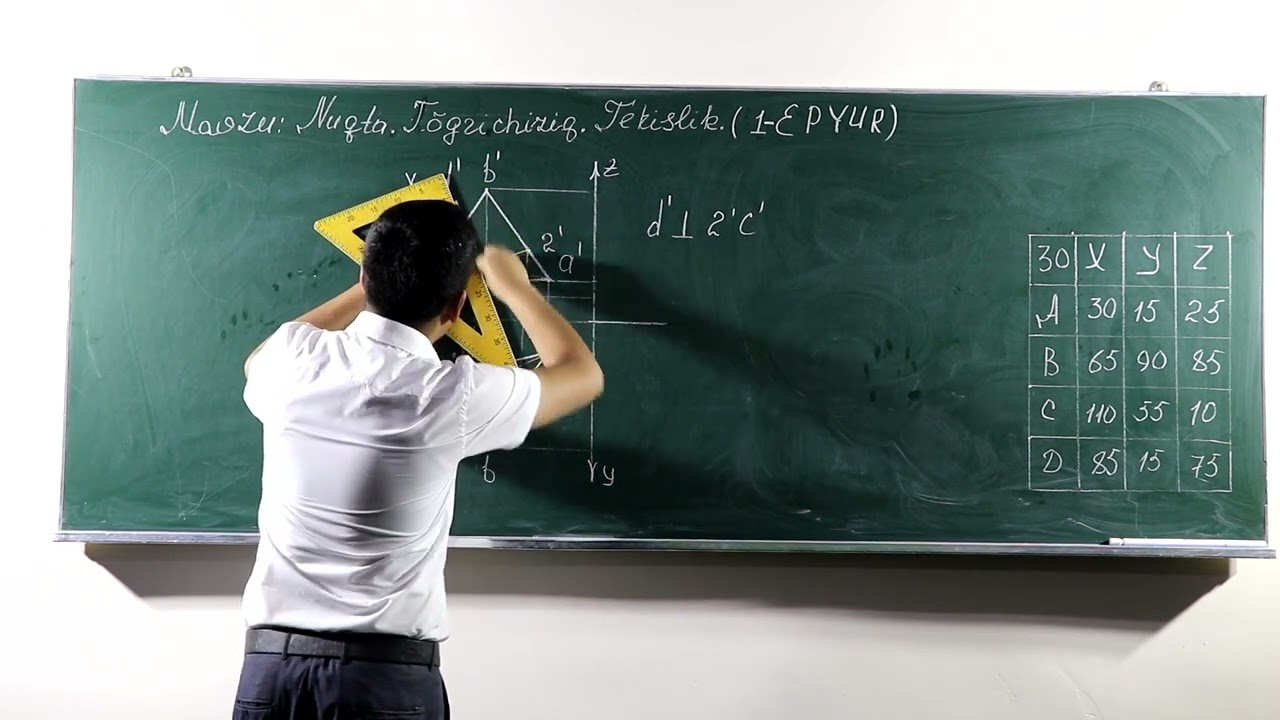 Mavzu: Nuqta. Tōgrichiziq. Tekislik. (1-EPYUR)
b' z
d' ⊥ 2'c'
2'
a'
b y
30 X Y Z
A 30 15 25
B 65 90 85
C 110 55 10
D 85 15 75